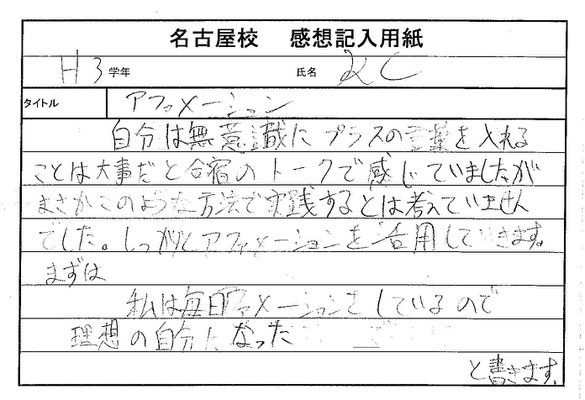 名古屋校 感想記入用紙
H3 学年 氏名 K.C
タイトル アファメーション
自分は無意識にプラスの言葉を入れる
ことは大事だと合宿のトークで感じていましたが
まさかこのような方法で実践するとは考えていません
でした。しっかりとアファメーションを活用していきます。
まずは
私は毎日ファメーションをしているので
理想の自分になった
と書きます。